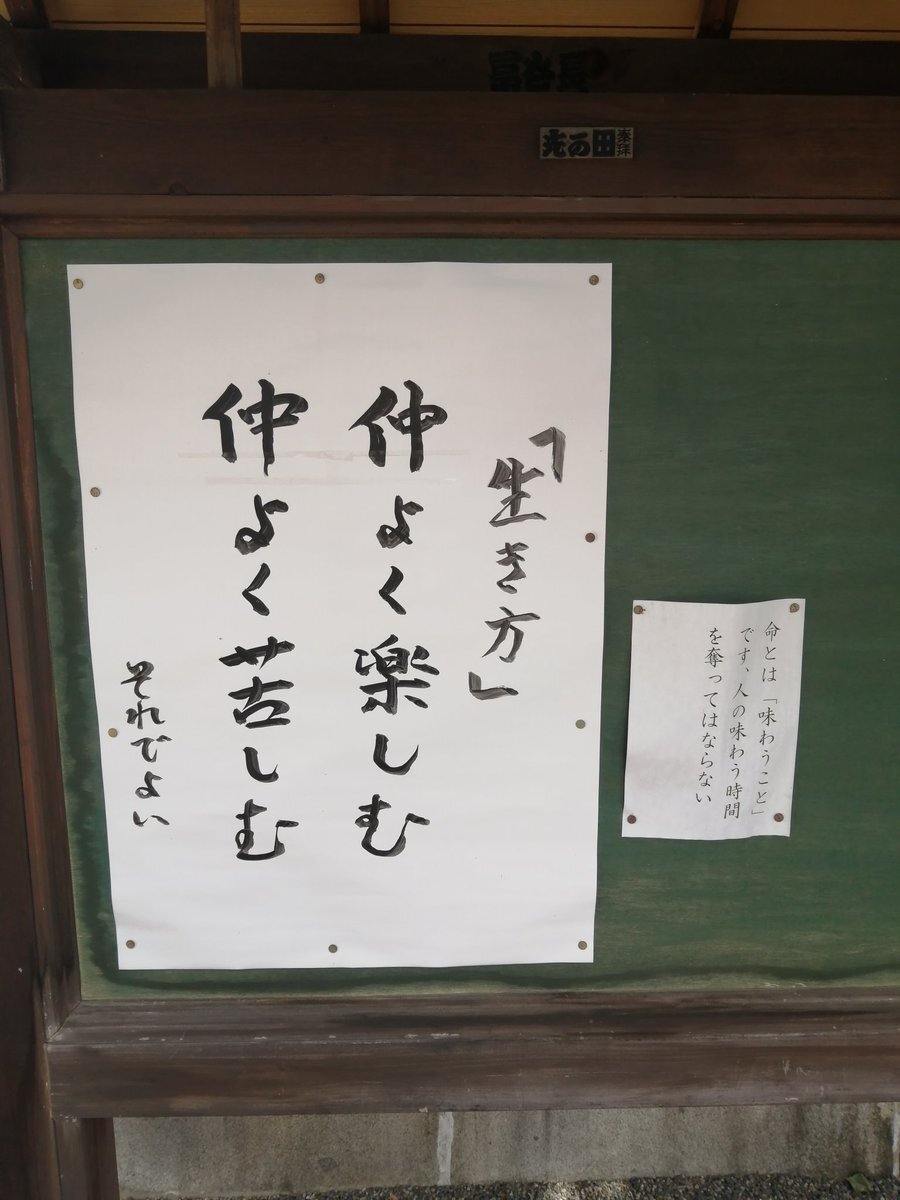 「生き方」
仲よく楽しむ
仲よく苦しむ
それでよい
命とは「味わうこと」
です、人の味わう時間
を奪ってはならない